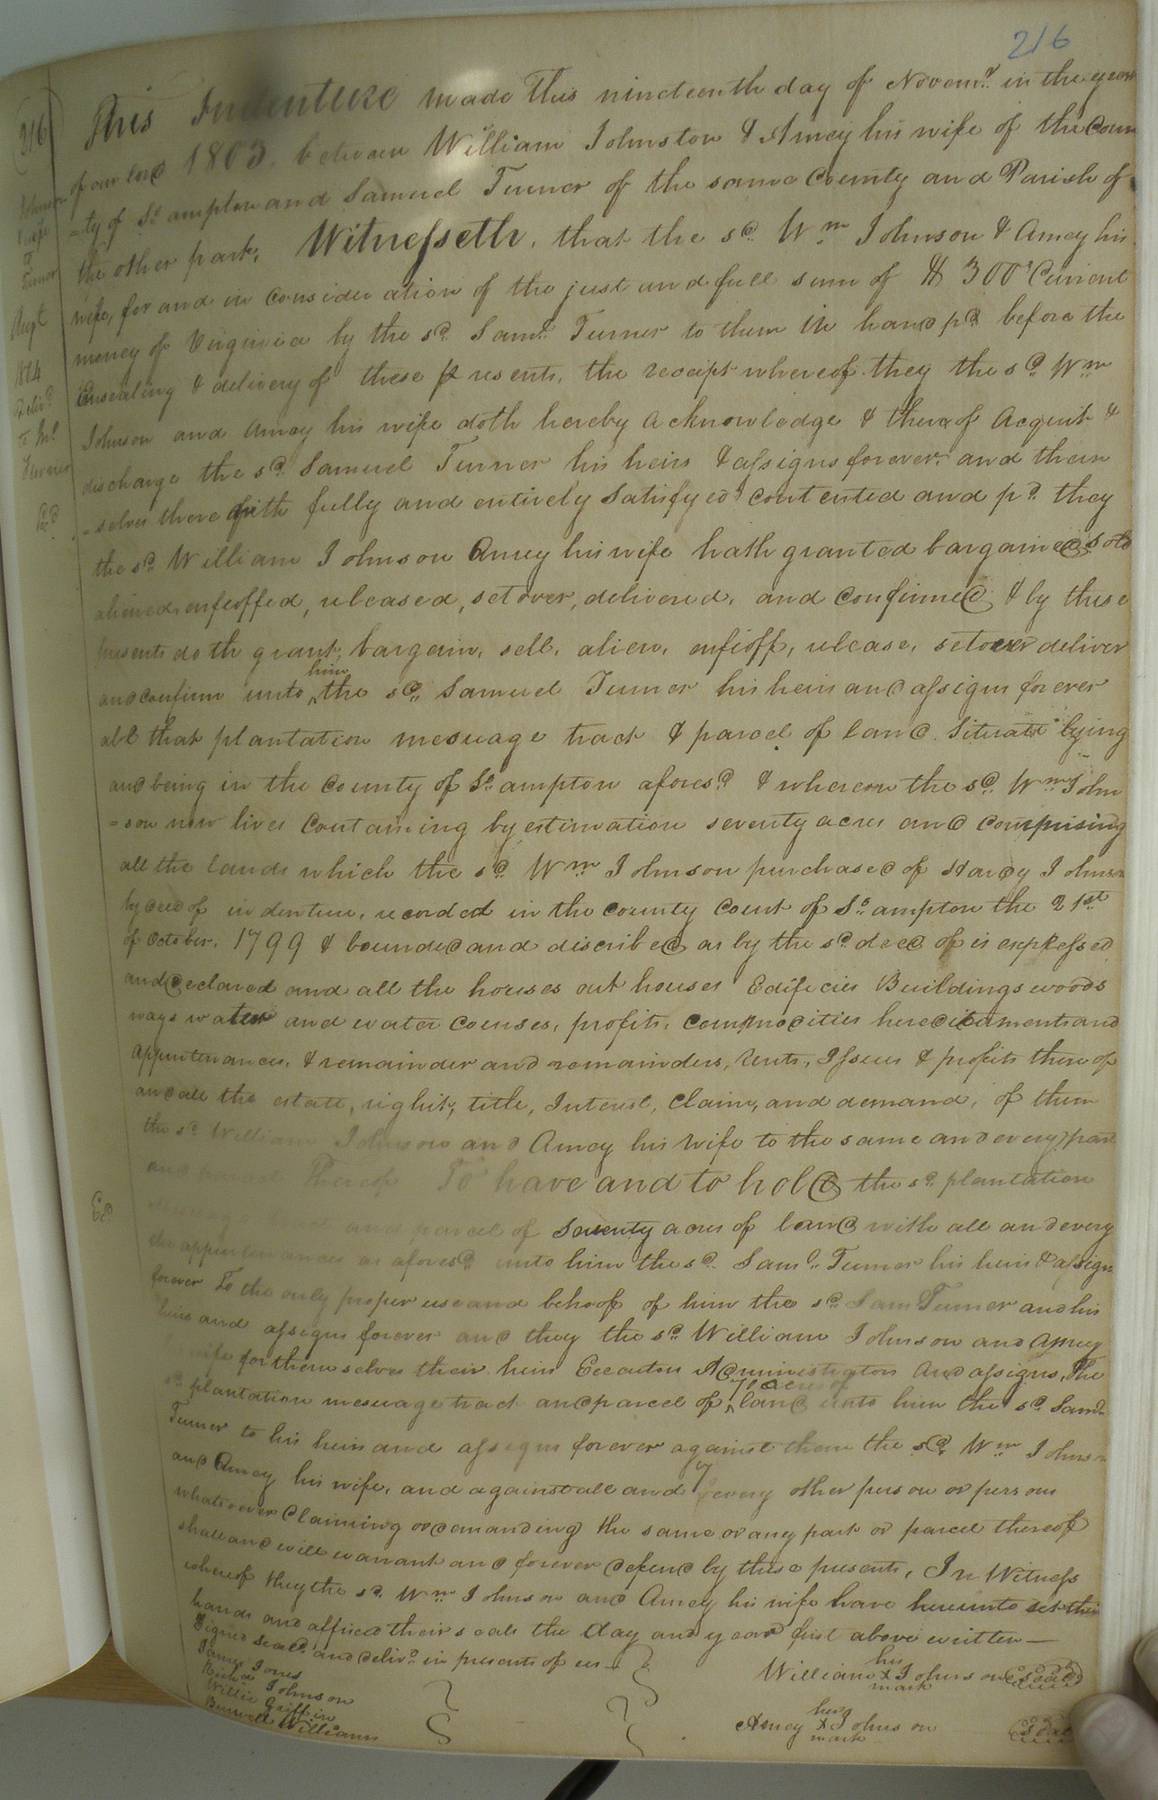 216
(216
Johnson
&
wife
to
Turner
Augt
1814
Deliv.d
to Ml
Turner
Ex.d
This Indenture made This nineteenth day of Novem.r in the year
of our lord 1803. between William Johnston & Amey his wife of the Coun
=ty of So. ampton and Samuel Turner of the same County and Parish of
the other part, Witnesseth, that the sd. Wm Johnson & Amey his
wife, for and in consideration of the just and full sum of $ 300 Current
money of Virginia by the sd. Saml. Turner to them in hand pd. before the
Ensealing & delivery of these presents, the receipt whereof they the sd. Wm
Johnson and Amey his wife doth hereby acknowledge & thereof Acquit &
discharge the sd. Samuel Turner his heirs & assigns forever. and them
=selves there with fully and entirely Satisfyed contented and pd. they
the sd. William Johnson Amey his wife hath granted bargained sold
aliened, enfeoffed, released, set over, delivered, and confirmed & by these
presents doth grant, bargain, sell, alien, enfeoff, release, set over deliver
him
and confirm unto ^ the sd. Samuel Turner his heirs and assigns forever
all that plantation mesuage tract & parcel of land. Situate lying
and being in the County of So. ampton afores.d & whereon the sd. Wm John
=son now lives Containing by estimation seventy acres and comprising
all the lands which the sd. Wm Johnson purchased of Hardy Johnson
by deed of indenture, recorded in the county Court of So. ampton the 21st
of October. 1799 & bounded and discribed as by the sd. deed of is expressed
and declared and all the houses out houses Edificies Buildings woods
ways water and water courses, profits, commodities hereditaments and
Appurtenances, & remainder and remainders, Rents, Issues & profits thereof
and all the estate, right, title, Interest, claim, and demand, of them
the sd. William Johnson and Amey his wife to the same and every part
and parcel thereof To have and to hold the sd. plantation
Ed
mesuage tract and parcel of Seventy acres of land with all and every
the appurtenances as afores.d unto him the sd. Saml. Turner his heirs & assigns
forever To the only proper use and behoof of him the sd. Sam Turner and his
heirs and assigns forever and they the sd. William Johnson and Amey
wife for themselves their heirs Executors Administrators and assigns, The
70 acres of
sd. plantation mesuage tract and parcel of ^ land unto him the sd. Saml.
Turner to his heirs and assigns forever against them the sd. Wm Johnson
and Amey his wife, and against all and every other person or persons
whatsoever Claiming or demanding the same or any part or parcel thereof
shall and will warrant and forever defend by these presents, In Witness
whereof they the sd. Wm Johnson and Amey his wife have hereunto set their
hands and affixed their seals the day and year first above written—
Signed seald. and deliv.d in presents of us—
James Jones
Johnson
Willie Griffin
Burwell Williams
his
William X Johnson (Seal)
mark
her
Amey X Johnson (Seal)
mark